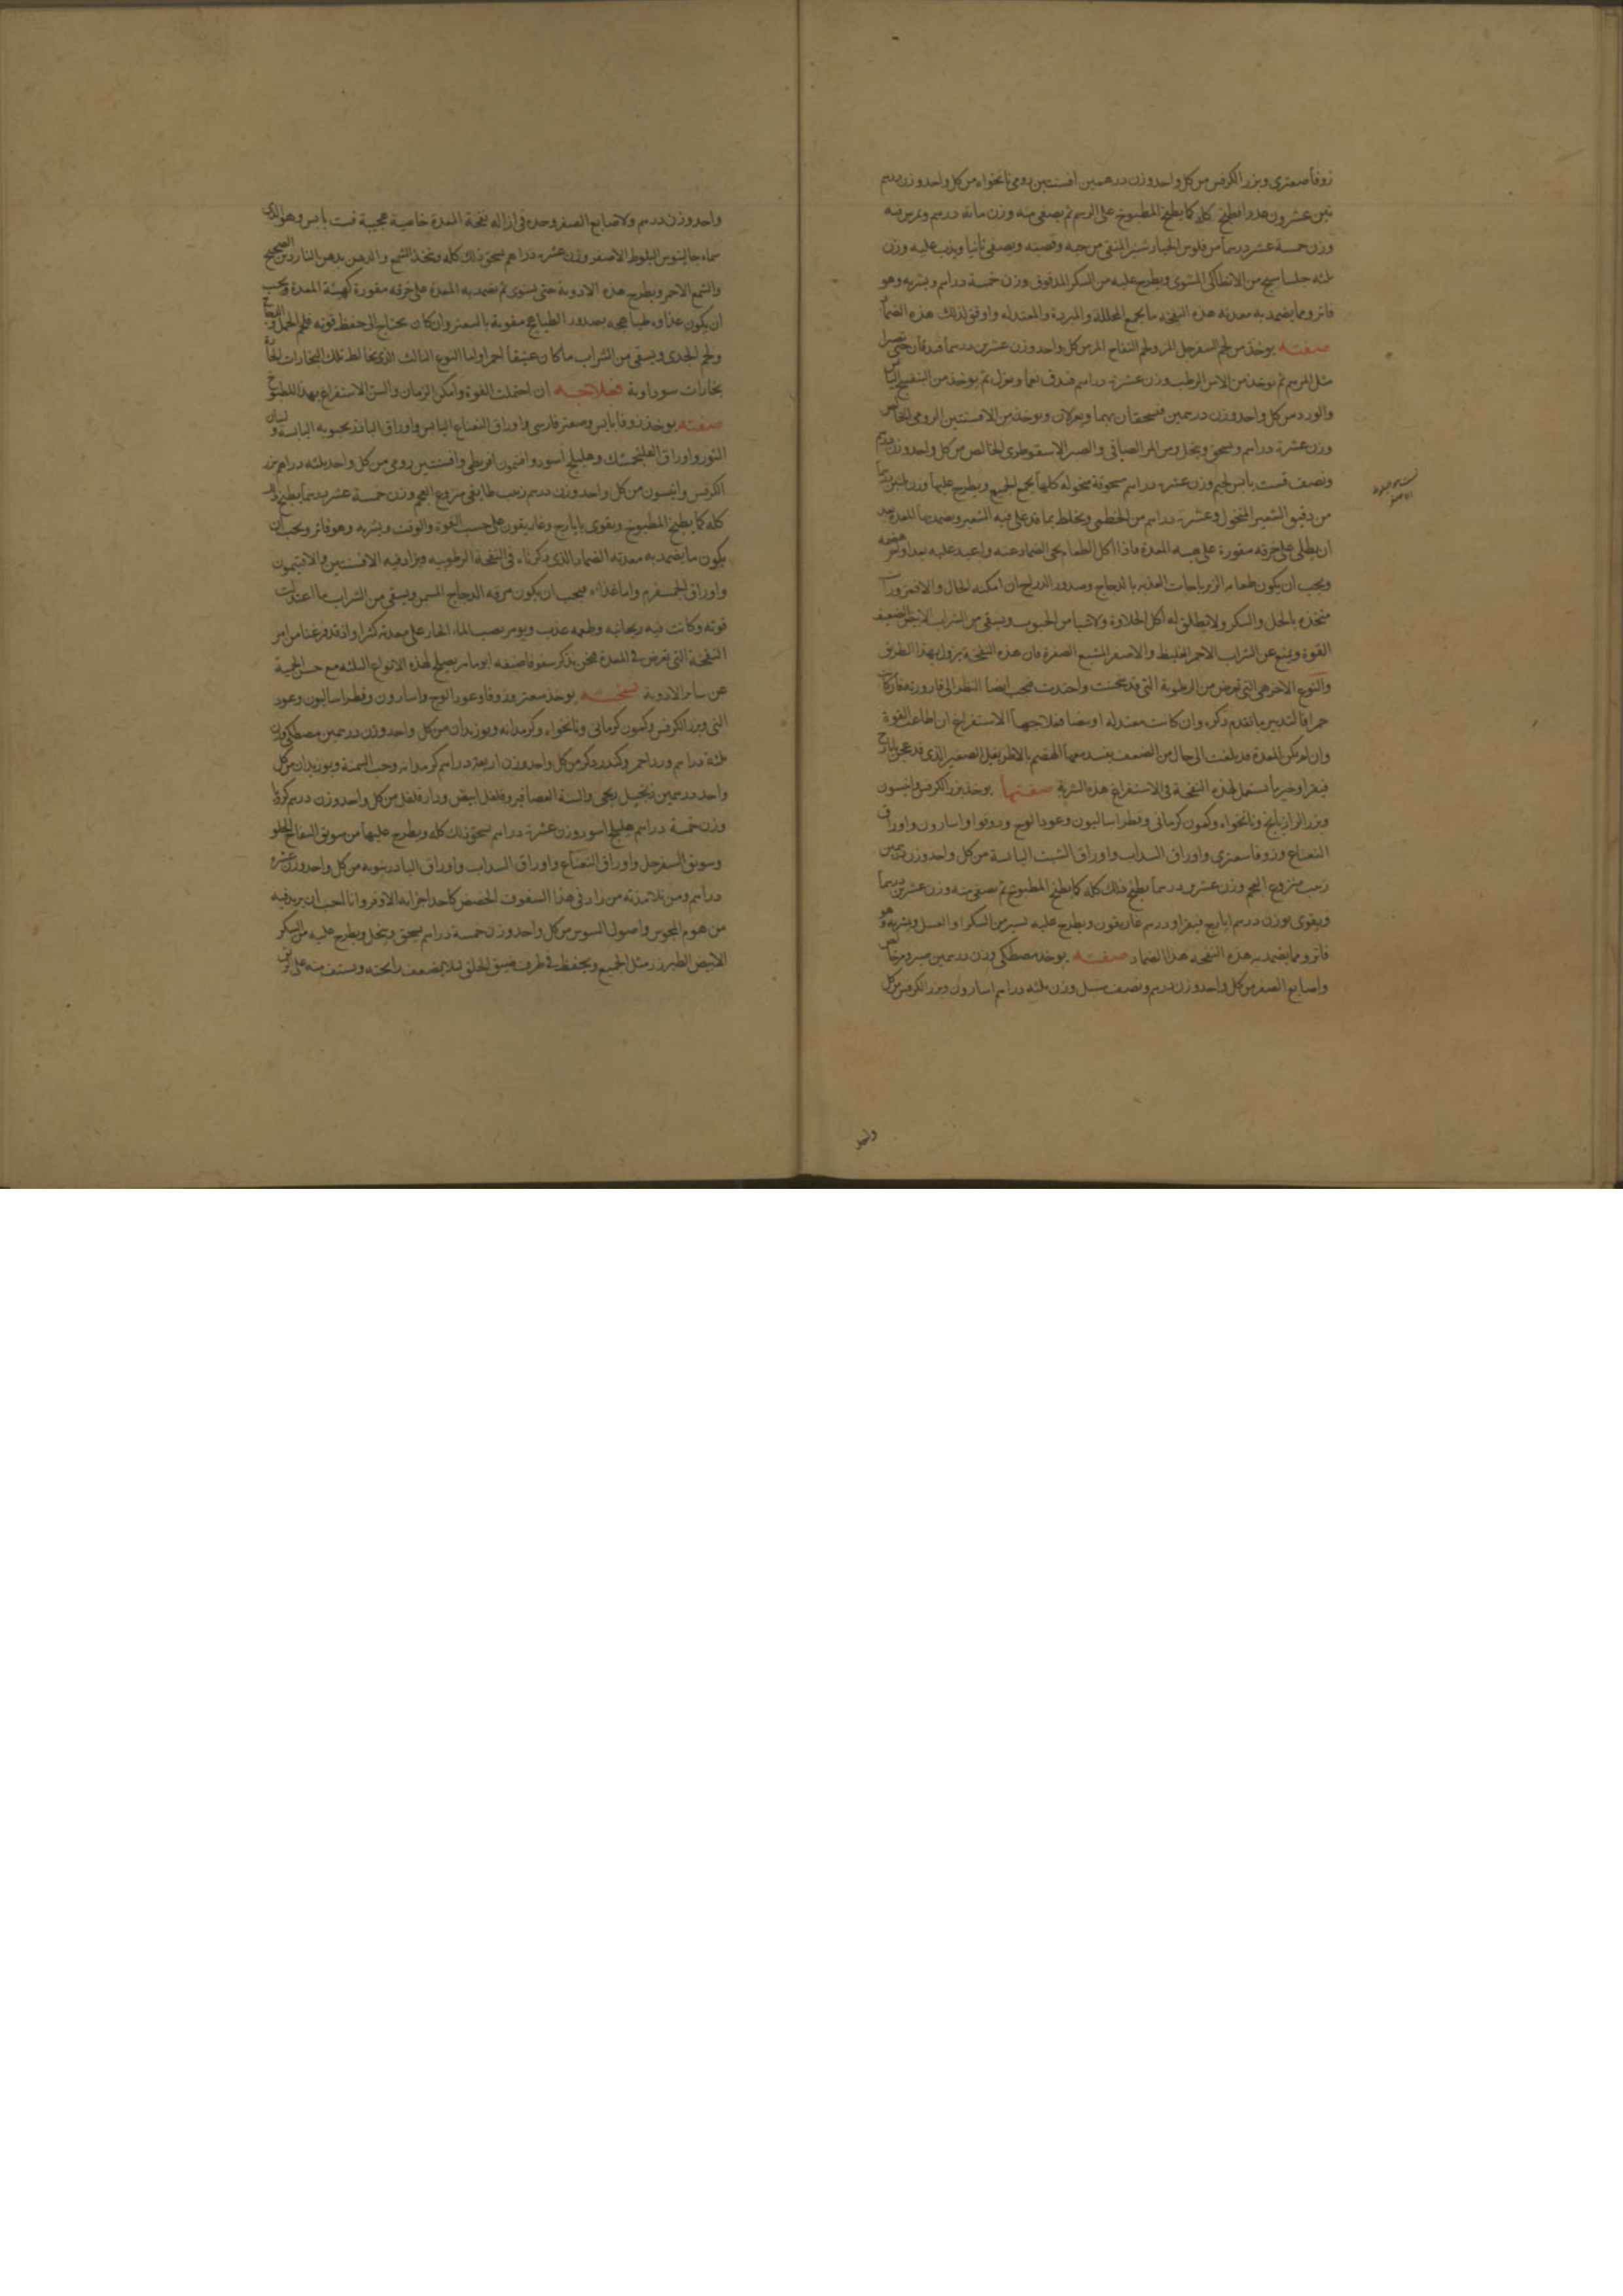 زوفا صعتري وبزر الكرفس من كل واحد وزن درهمين افسنتين رومي نانخواه من كل واحد وزن درهم
تين عشرون عددا يطبخ كله كما يطبخ المطبوخ على الرسم ثم يصفى منه وزن مائة درهم ويمرس فيه
وزن خمسة عشر درهما من فلوس الخيارشنبر المنقى من حبه وقصبه ويصفى ثانيا ويذب عليه وزن
ثلثه من الانطاكي المشوي ويطرح عليه من السكر المدقوق وزن خمسة دراهم ويشربه وهو
فاتر ومما يضمد به معدته هذه النفخه ما يجمع المحللة والمبردة والمعتدله واوفق لذلك هذه الضماد
صفته يوخذ من لحم السفرجل المر ولحم التفاح المر من كل واحد وزن عشرين درهما فيدقان حتى تصيرا
مثل المرهم ثم يوخذ من الاس الرطب وزن عشرة دراهم فيدق نعما ويعزل ثم يوخذ من البنفسج اليابس
والورد من كل واحد وزن درهمين فيسحقان بهما ويعزلان ويوخذ من الافسنتين الرومي الخالص
وزن عشرة دراهم ويسحق وينخل ومن المر الصافي والصبر الاسقوطري الخالص من كل واحد وزن درهم
ونصف وزن عشرة دراهم مسحوقة منخوله كلها يجمع الجميع ويطرح عليها وزن
من دقيق الشعير المنخول وعشرة دراهم من الخطمي ويخلط بما قد غلي فيه الشعير ويضمد بها المعدة بعد
ان يطلى على خرقه مقورة على هيئة المعدة فاذا اكل الطعام نحي الضماد عنه واعيد عليه بعد
ويجب ان يكون طعامه الزيرباجات العذبه بالدجاج وصدور الدراج ان امكنه الحال والا فمزورات
متخذه بالخل والسكر ولا يطلق له اكل الحلاوة ولا شيا من الحبوب ويسقى من الشراب الابيض الضعيف
القوة ويمنع عن الشراب الاحمر الغليظ والاصفر المشبع الصفرة فان هذه النفخة يزول بهذا الطريق
والنوع الاخر هي التي تعرض من الرطوبة التي قد عفنت واحتدت فيجب ايضا النظر الى قارورته فان كان
حمراء فالتدبير ما تقدم ذكره وان كانت معتدله او بيضا فعلاجها الاستفراغ ان اطاعت القوة
وان لم تكن المعدة قد بلغت الى حال من الضعف يفسد معها الهضم بالاطريفل الصغير الذي قد عجن بايارج
فيقرا وخير ما تستعمل لهذه النفخة في الاستفراغ هذه الشربة صفتها يوخذ بزر الكرفس وانيسون
وبزر الرازيانج ونانخواه وكمون كرماني وفطراساليون وعود الوج ودوقوا واسارون واوراق
النعناع وزوفا صعتري واوراق السداب واوراق الشبت اليابسة من كل واحد وزن درهمين
زبيب منزوع العجم وزن عشرين درهما يطبخ ذلك كله كما يطبخ المطبوخ ثم يصفى منه وزن عشرين درهما
ويقوى بوزن درهم ايارج فيقرا ودرهم غاريقون ويطرح عليه يسير من السكر او العسل ويشربه وهو
فاتر ومما يضمد به هذه النفخه هذا الضماد صفته يوخذ مصطكى وزن درهمين صبر
واصابع الصفر من كل واحد وزن درهم ونصف سنبل وزن ثلثه دراهم اسارون وبزر الكرفس من كل
واحد
واحد وزن درهم ولاصابع الصفر وحده في ازاله نفخة المعدة خاصية عجيبة يابس وهو الذي
سماه جالينوس البلوط الاصفر وزن عشرة دراهم يسحق ذلك كله ويتخذ الشمع والدهن بدهن الناردين الصحيح
والشمع الاحمر ويطرح هذه الادوية حتى يستوي ثم يضمد به المعدة على خرقه مقورة كهيئة المعدة ويجب
ان يكون غذاوه طياهيجه بصدور الطياهيج مقوية بالسعتر وان كان يحتاج الى حفظ قوته فلحم الحمل
ولحم الجدي ويسقى من الشراب ما كان عتيقا احمر واما النوع الثالث الذي يخالط تلك البخارات الحارة
بخارات سوداوية فعلاجه ان احتملت القوة وامكن الزمان والسن الاستفراغ بهذا المطبوخ
صفته يوخذ زوفا يابس وصعتر فارسي واوراق النعناع اليابس واوراق الباذرنجبويه اليابسة ولسان
الثور واوراق الفلنجمشك وهليلج اسود وافتمون اقريطي وافسنتين رومي من كل واحد ثلثه دراهم بزر
الكرفس وانيسون من كل واحد وزن درهم زبيب طايفي منزوع العجم وزن خمسة عشر درهما يطبخ ذلك
كله كما يطبخ المطبوخ ويقوى بايارج وغاريقون على حسب القوة والوقت ويشربه وهو فاتر ويجب ان
يكون ما يضمد به معدته الضماد الذي ذكرناه في النفخة الرطوبيه ويزاد فيه الافسنتين والافتيمون
واوراق الجمسفرم واما غذاءه فيجب ان يكون مرقه الدجاج المسمن ويسقى من الشراب ما اعتدلت
قوته وكانت فيه ريحانيه وطعمه عذب ويومر بصب الماء الحار على معدته كثيرا واذ قد فرغنا من امر
النفخة التي تعرض في المعدة فنحن نذكر سفوفا صنفه ابو ماهر يصلح لهذه الانواع الثلثه مع حسن الحمية
عن ساير الادوية نسخته يوخذ سعتر وزوفا وعود الوج واسارون وفطراساليون وعود
البني وبزر الكرفس وكمون كرماني ونانخواه وكرمدانه وبوزيدان من كل واحد وزن درهمين مصطكى وزن
ثلثة دراهم ورد احمر وكندر ذكر من كل واحد وزن اربعة دراهم كرمدانه وحب السمنة وبوزيدان من كل
واحد درهمين زنجبيل ريحي والسنة العصافير وفلفل ابيض ودارفلفل من كل واحد وزن درهم كرويا
وزن خمسة دراهم هليلج اسود وزن عشرة دراهم يسحق ذلك كله ويطرح عليها من سويق التفاح الحلو
وسويق السفرجل واوراق النعناع واوراق السداب واوراق البادرنبويه من كل واحد وزن عشرة
دراهم ومن تلامذته من زاد في هذا السفوف الحضض كاحد اجزائه الاوفر وانا احب ان يزيد فيه
من هوم المجوس واصول السوس من كل واحد وزن خمسة دراهم يسحق وينخل ويطرح عليه من السكر
الابيض الطبرزد مثل الجميع ويحفظ في ظرف ضيق الحلق ليلا يضعف رائحته ويستف منه على الريق